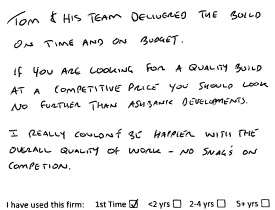 TOM & HIS TEAM DELIVERED THE BUILD
ON TIME AND ON BUDGET.
IF YOU ARE LOOKING FOR A QUALITY BUILD
AT A COMPETITIVE PRICE YOU SHOULD LOOK
NO FURTHER THAN ASHBANK DEVELOPMENTS.
I REALLY COULDN'T BE HAPPIER WITH THE
OVERALL QUALITY OF WORK - NO SNAG'S ON
COMPETION.
I have used this firm: 1st Time ☑ <2 yrs ☐ 2-4 yrs ☐ 5+ yrs ☐